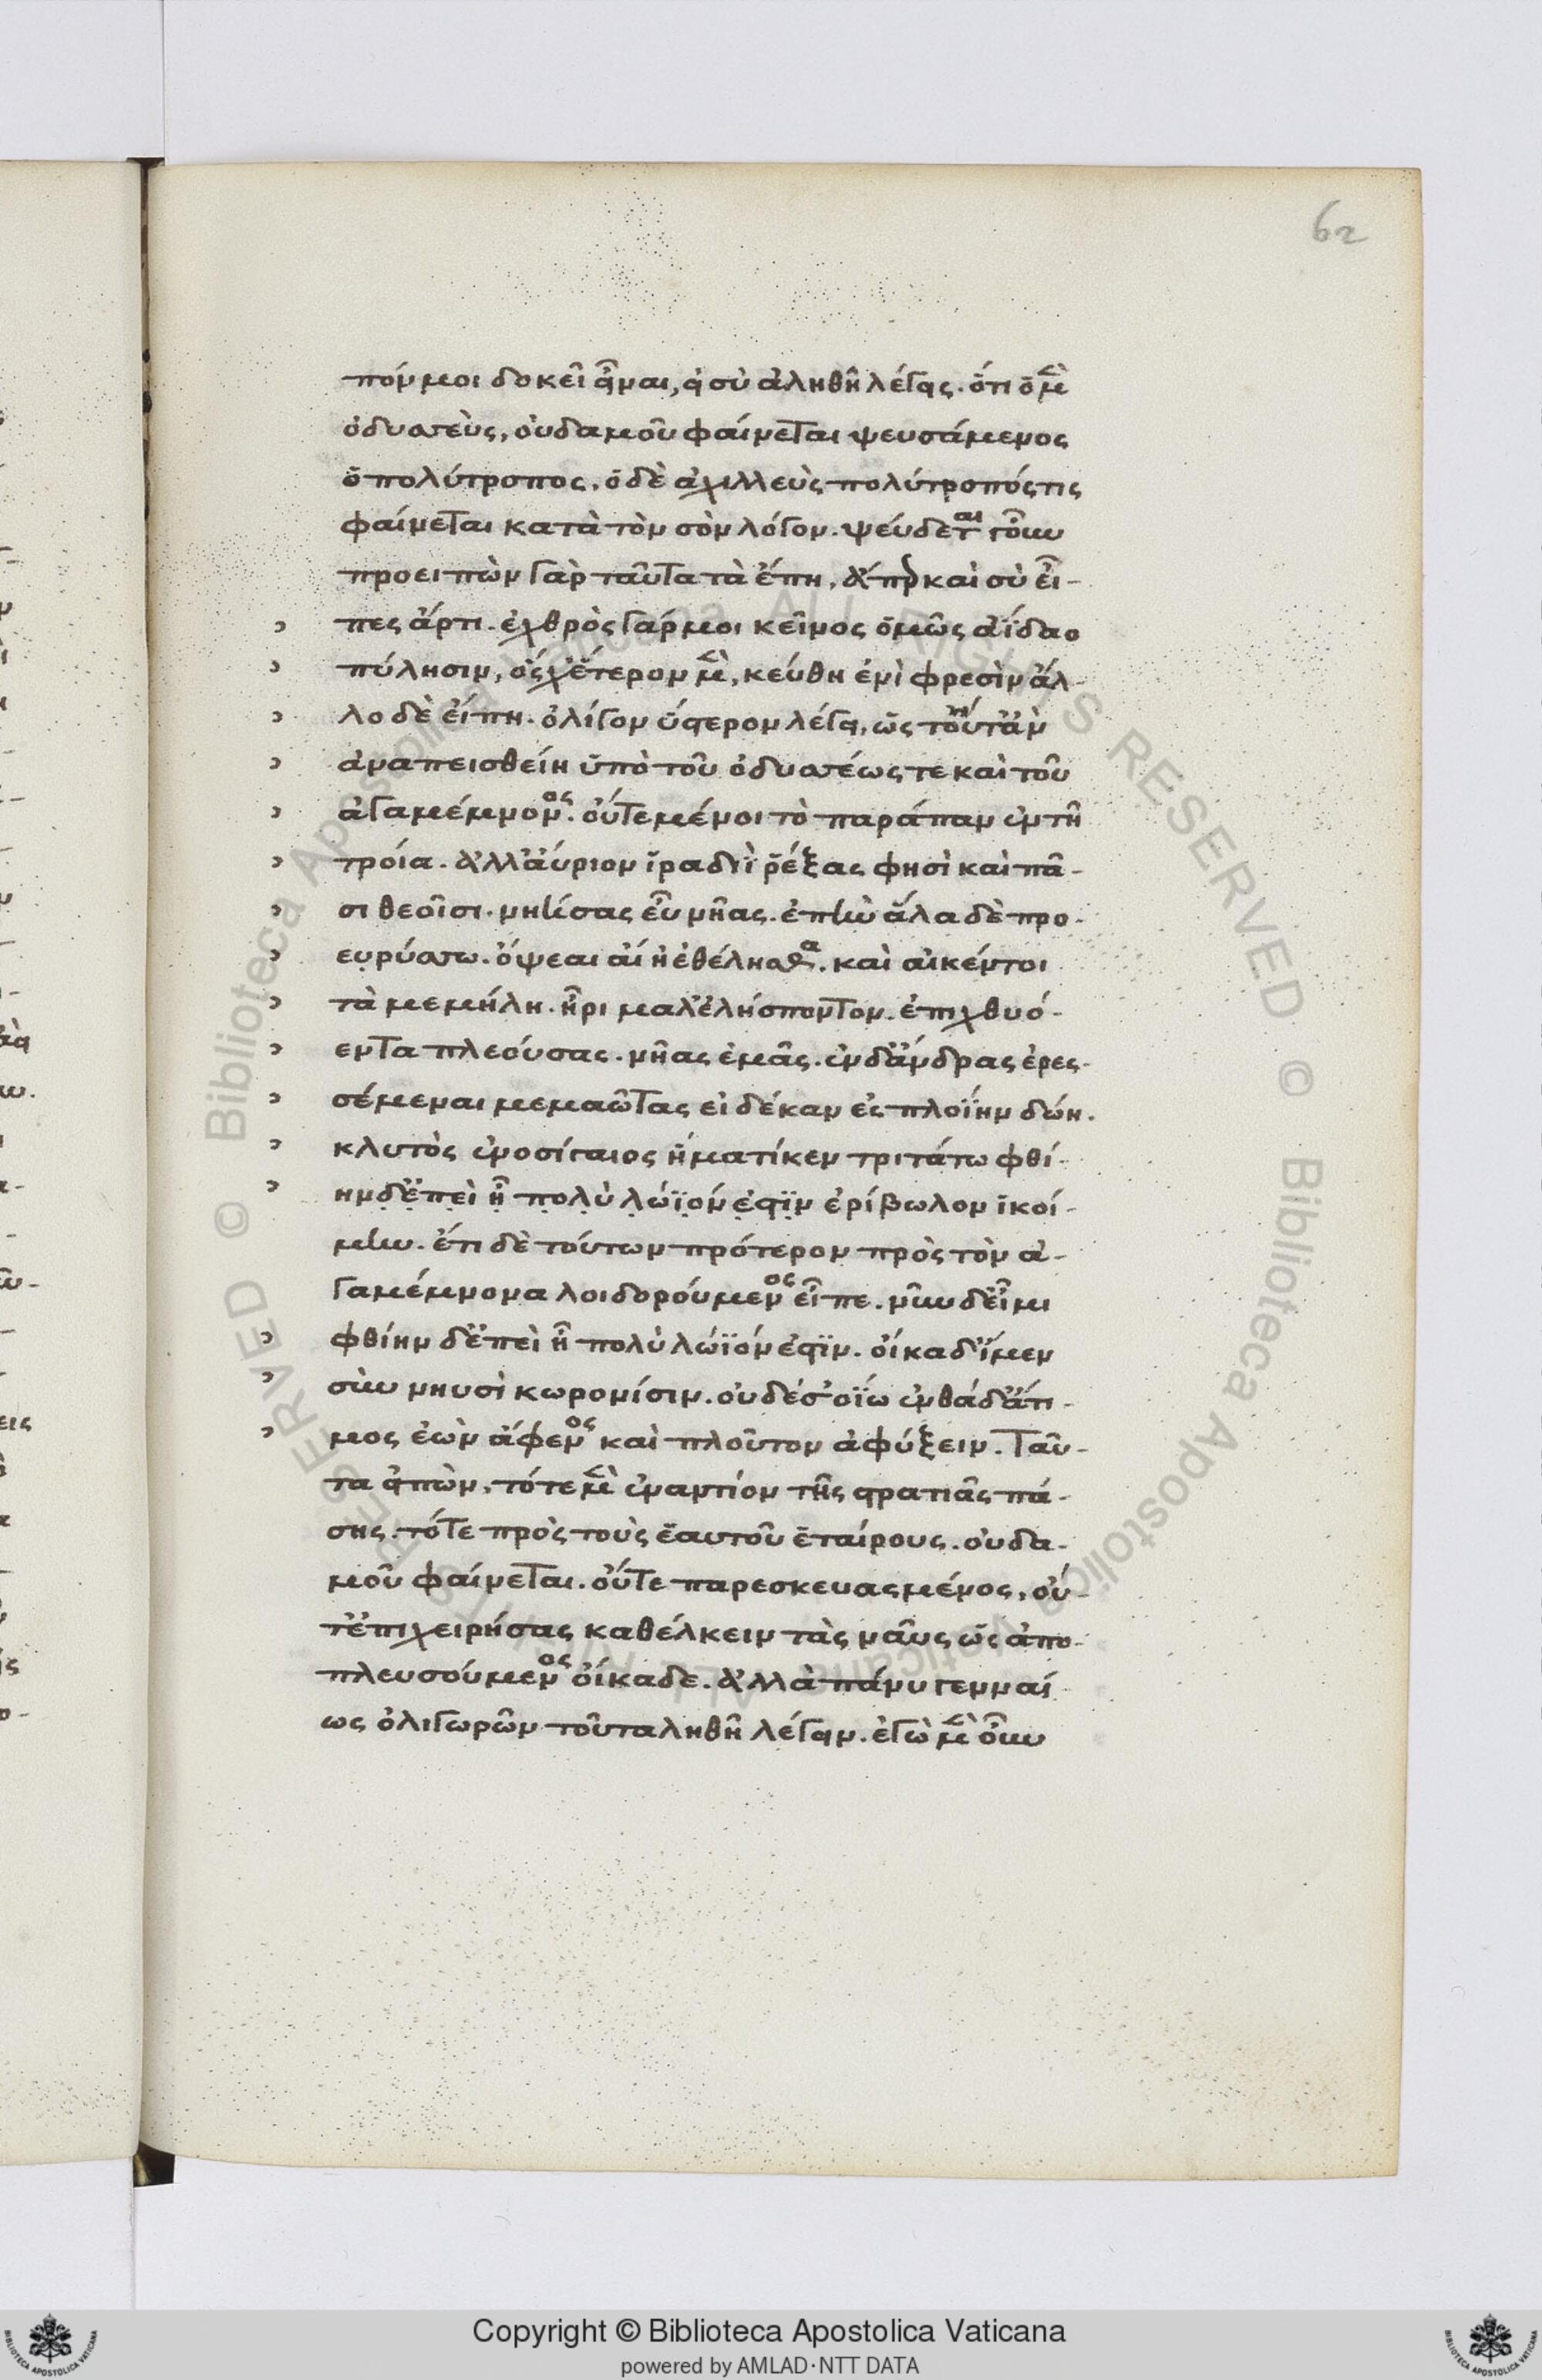 62
πόν μοι δοκεῖ εἶναι, εἰ σὺ ἀληθῆ λέγεις. ὅτι ὁ μὲν
ὀδυσσεὺς, οὐδαμοῦ φαίνεται ψευσάμενος
ὁ πολύτροπος. ὁ δὲ ἀχιλλεὺς πολύτροπός τις
φαίνεται κατὰ τὸν σὸν λόγον. ψεύδεται γοῦν
προειπὼν γὰρ ταῦτα τὰ ἔπη, ἅπερ καὶ σὺ εἶ-
πες ἄρτι. ἐχθρὸς γάρ μοι κεῖνος ὁμῶς ἀΐδαο
πύλησιν, ὅς χ' ἕτερον μὲν, κεύθη ἐνὶ φρεσὶν ἄλ-
λο δὲ εἴπη. ὀλίγον ὕστερον λέγει, ὡς οὔτ' ἂν
ἀναπεισθείη ὑπὸ τοῦ ὀδυσσέως τε καὶ τοῦ
ἀγαμέμνονος. οὔτε μένοι τὸ παράπαν ἐν τῆ
τροία. ἀλλ' αὔριον ἱρὰ διῒ ῥέξας φησὶ καὶ πᾶ-
σι θεοῖσι. νηήσας εὖ νῆας. ἐπὴν ἅλα δὲ προ-
ερύσσω. ὄψεαι αἴ ἢ ἐθέλησθα. καὶ αἰκέν τοι
τὰ μεμήλη. ἦρι μαλ' ἐλήσποντον. ἐπ' ἰχθυό-
εντα πλεούσας. νῆας ἐμᾶς. ἐν δ' ἄνδρας ἐρες-
σέμεναι μεμαῶτας εἰ δέ καν ἐς πλοΐην δώη.
κλυτὸς ἐνοσίγαιος ἤματί κεν τριτάτω φθί-
ην δ' ἐπεὶ ἦ πολὺ λώϊόν ἐστὶν ἐρίβωλον ἱκοί-
μην. ἔτι δὲ τούτων πρότερον πρὸς τὸν ἀ-
γαμέμνονα λοιδορούμενος εἶπε. νῦν δ' εἶμι
φθίην δ' ἐπεὶ ἦ πολὺ λώϊόν ἐστὶν. οἴκαδ' ἴμεν
σὺν νηυσὶ κωρονίσιν. οὐδέ σ' οἴω ἐνθάδ' ἄτι-
μος ἐὼν ἄφενος καὶ πλοῦτον ἀφύξειν. ταῦ-
τα εἰπὼν, τότε μὲν ἐναντίον τῆς στρατιᾶς πά-
σης. τότε πρὸς τοὺς ἑαυτοῦ ἑταίρους. οὐδα-
μοῦ φαίνεται. οὔτε παρεσκευασμένος, οὔ-
τ' ἐπιχειρήσας καθέλκειν τὰς ναῦς ὡς ἀπο-
πλευσούμενος οἴκαδε. ἀλλὰ πάνυ γενναί-
ως ὀλιγωρῶν τοῦ ταληθῆ λέγειν. ἐγὼ μὲν οὖν
Copyright © Biblioteca Apostolica Vaticana
powered by AMLAD·NTT DATA
© Biblioteca Apostolica Vaticana ALL RIGHTS RESERVED
© Biblioteca Apostolica Vaticana ALL RIGHTS RESERVED